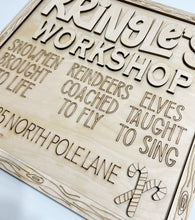 KRINGLE'S
WORKSHOP
SNOWMEN REINDEERS ELVES
BROUGHT COACHED TAUGHT
TO LIFE TO FLY TO SING
25 NORTH POLE LANE